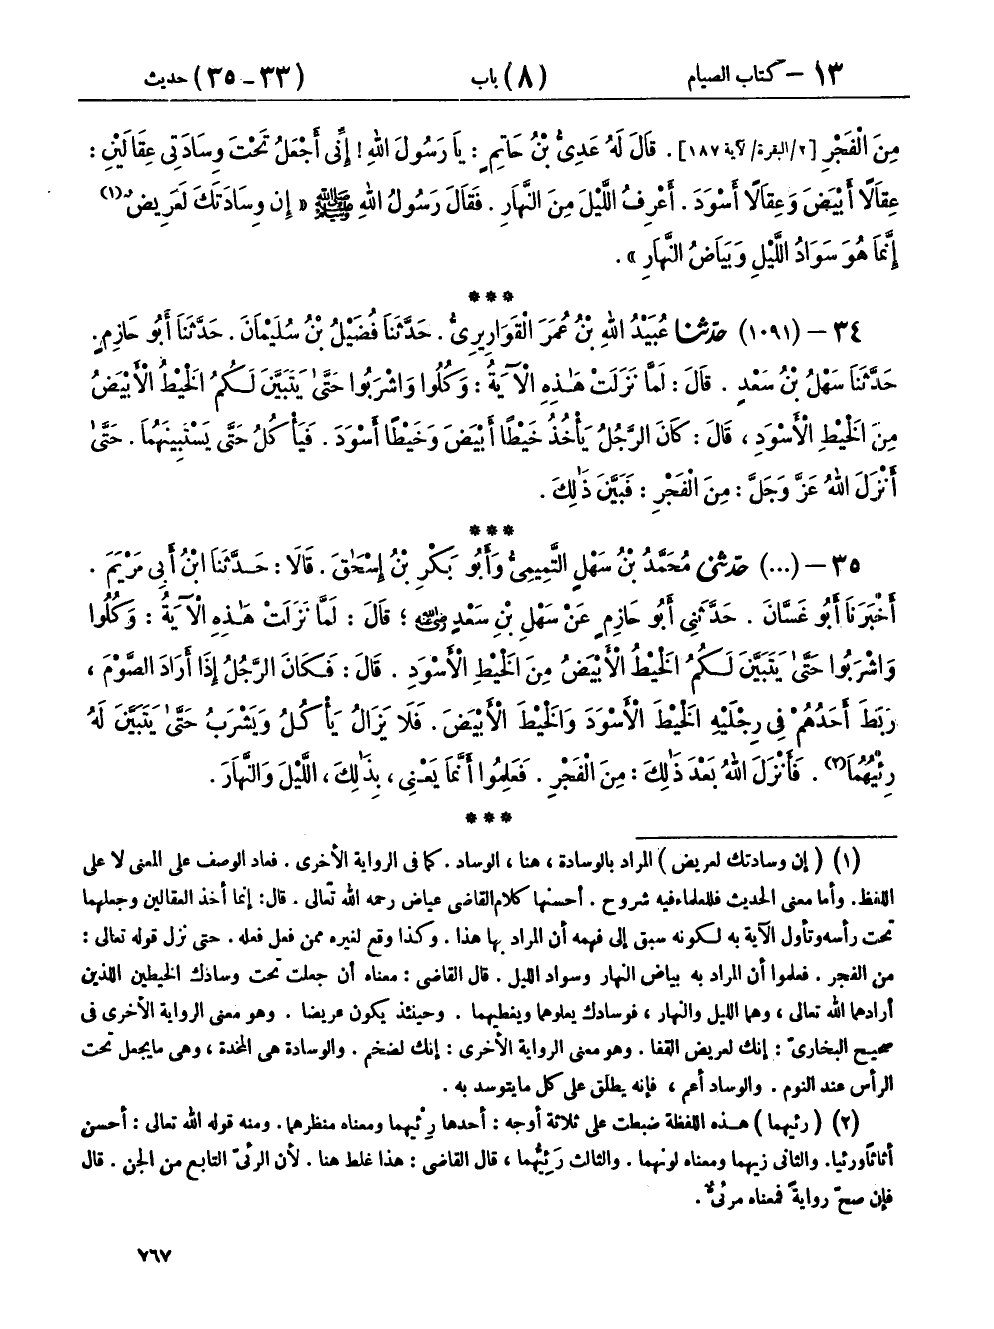 ١٣ – كتاب الصيام (٨) باب (٣٣ – ٣٥) حديث
مِنَ الْفَجْرِ [٢/البقرة/ الآية ١٨٧]. قَالَ لَهُ عَدِىُّ بْنُ حَاتِمٍ : يَا رَسُولَ اللهِ ! إِنِّى أَجْعَلُ تَحْتَ وِسَادَتِى عِقَالَيْنِ :
عِقَالًا أَبْيَضَ وَعِقَالًا أَسْوَدَ . أَعْرِفُ اللَّيْلَ مِنَ النَّهَارِ . فَقَالَ رَسُولُ اللهِ ﷺ « إِن وِسَادَتَكَ لَعَرِيضٌ(١)
إِنَّمَا هُوَ سَوَادُ اللَّيْلِ وَبَيَاضُ النَّهَارِ » .
***
٣٤ – (١٠٩١) حدّثنا عُبَيْدُ اللهِ بْنُ عُمَرَ الْقَوَارِيرِىُّ . حَدَّثَنَا فُضَيْلُ بْنُ سُلَيْمَانَ . حَدَّثَنَا أَبُو حَازِمٍ .
حَدَّثَنَا سَهْلُ بْنُ سَعْدٍ . قَالَ : لَمَّا نَزَلَتْ هَٰذِهِ الْآيَةُ : وَكُلُوا وَاشْرَبُوا حَتَّىٰ يَتَبَيَّنَ لَكُمُ الْخَيْطُ الْأَبْيَضُ
مِنَ الْخَيْطِ الْأَسْوَدِ ، قَالَ : كَانَ الرَّجُلُ يَأْخُذُ خَيْطًا أَبْيَضَ وَخَيْطًا أَسْوَدَ . فَيَأْكُلُ حَتَّى يَسْتَبِينَهُمَا . حَتَّىٰ
أَنْزَلَ اللهُ عَزَّ وَجَلَّ : مِنَ الْفَجْرِ : فَبَيَّنَ ذَٰلِكَ .
***
٣٥ – (...) حدّثنى مُحَمَّدُ بْنُ سَهْلٍ التَّمِيمِىُّ وَأَبُو بَكْرِ بْنُ إِسْحَٰقَ . قَالَا : حَدَّثَنَا ابْنُ أَبِى مَرْيَمَ .
أَخْبَرَنَا أَبُو غَسَّانَ . حَدَّثَنِى أَبُو حَازِمٍ عَنْ سَهْلِ بْنِ سَعْدٍ رضي الله عنه ؛ قَالَ : لَمَّا نَزَلَتْ هَٰذِهِ الْآيَةُ : وَكُلُوا
وَاشْرَبُوا حَتَّىٰ يَتَبَيَّنَ لَكُمُ الْخَيْطُ الْأَبْيَضُ مِنَ الْخَيْطِ الْأَسْوَدِ . قَالَ : فَكَانَ الرَّجُلُ إِذَا أَرَادَ الصَّوْمَ ،
رَبَطَ أَحَدُهُمْ فِى رِجْلَيْهِ الْخَيْطَ الْأَسْوَدَ وَالْخَيْطَ الْأَبْيَضَ . فَلَا يَزَالُ يَأْكُلُ وَيَشْرَبُ حَتَّىٰ يَتَبَيَّنَ لَهُ
رِئْيُهُمَا(٢) . فَأَنْزَلَ اللهُ بَعْدَ ذَٰلِكَ : مِنَ الْفَجْرِ . فَعَلِمُوا أَنَّمَا يَعْنِى ، بِذَٰلِكَ ، اللَّيْلَ وَالنَّهَارَ .
***
(١) ( إن وسادتك لعريض ) المراد بالوسادة ، هنا ، الوساد . كما فى الرواية الأخرى . فعاد الوصف على المعنى لا على
اللفظ . وأما معنى الحديث فللعلماء فيه شروح . أحسنها كلام القاضى عياض رحمه الله تعالى . قال : إنما أخذ العقالين وجعلهما
تحت رأسه وتأول الآية به لكونه سبق إلى فهمه أن المراد بها هذا . وكذا وقع لغيره ممن فعل فعله . حتى نزل قوله تعالى :
من الفجر . فعلموا أن المراد به بياض النهار وسواد الليل . قال القاضى : معناه أن جعلت تحت وسادك الخيطين اللذين
أرادهما الله تعالى ، وهما الليل والنهار ، فوسادك يعلوهما ويغطيهما . وحينئذ يكون عريضا . وهو معنى الرواية الأخرى فى
صحيح البخارىّ : إنك لعريض القفا . وهو معنى الرواية الأخرى : إنك لضخم . والوسادة هى المخدة ، وهى مايجعل تحت
الرأس عند النوم . والوساد أعم ، فإنه يطلق على كل مايتوسد به .
(٢) ( رئيهما ) هذه اللفظة ضبطت على ثلاثة أوجه : أحدها رِئْيهما ومعناه منظرهما . ومنه قوله الله تعالى : أحسن
أثاثًا ورئيا . والثانى زيهما ومعناه لونهما . والثالث رَئِيُّهما ، قال القاضى : هذا غلط هنا . لأن الرئىّ التابع من الجن . قال
فإن صحّ روايةً فمعناه مرئىٌّ .
٧٦٧